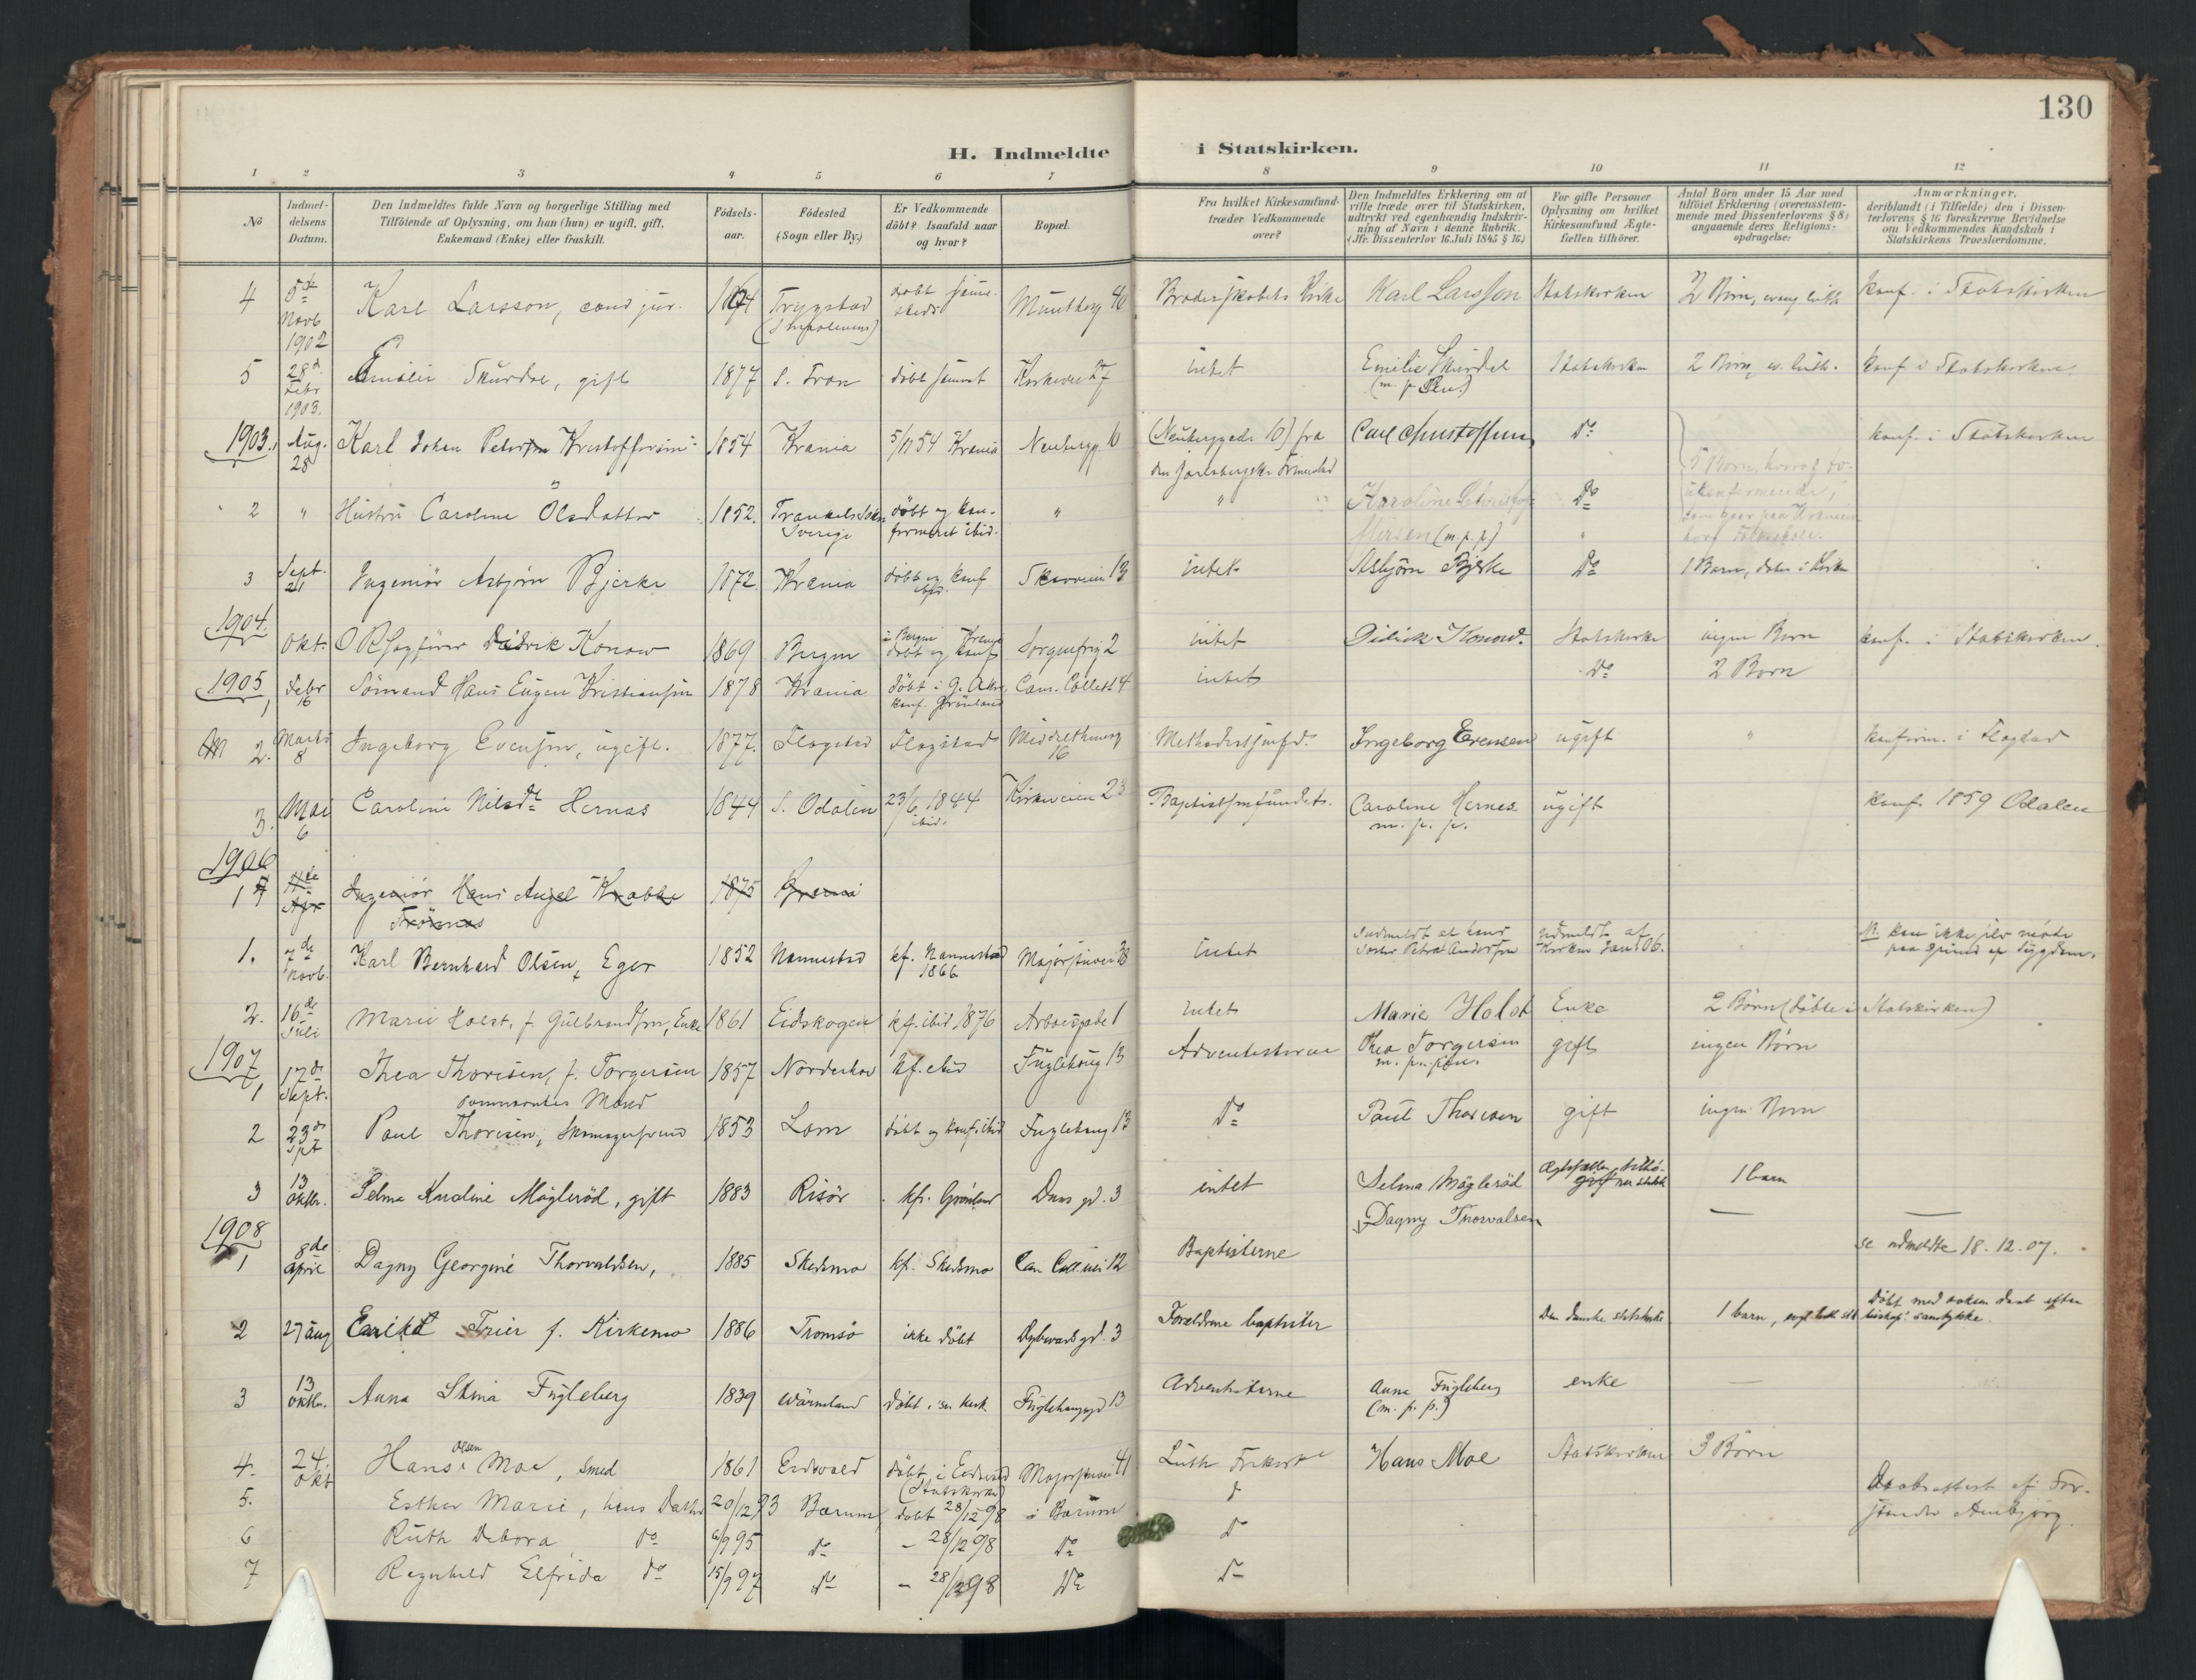 130
H. Indmeldte i Statskirken.
1 2 3 4 5 6 7 8 9 10 11 12
No
Indmeldelsens Datum.
Den Indmeldtes fulde Navn og borgerlige Stilling med
Tilföiende af Oplysning, om han (hun) er ugift, gift,
Enkemand (Enke) eller fraskilt.
Födselsaar.
Födested
(Sogn eller By.)
Er Vedkommende
döbt? Isaafald naar
og hvor?
Bopæl.
Fra hvilket Kirkesamfund
træder Vedkommende
over?
Den Indmeldtes Erklæring om at
ville træde over til Statskirken,
udtrykt ved egenhændig Indskriv-
ning af Navn i denne Rubrik.
(Jfr. Dissenterlov 16. Juli 1845 § 16.)
For gifte Personer
Oplysning om hvilket
Kirkesamfund Ægte-
fællen tilhörer.
Antal Börn under 15 Aar med
tilföiet Erklæring (overensstem-
mende med Dissenterlovens § 8)
angaaende deres Religions-
opdragelse.
Anmærkninger,
deriblandt (i Tilfælde) den i Dissen-
terlovens § 16 foreskrevne Bevidnelse
om Vedkommendes Kundskab i
Statskirkens Troeslærdomme.
4 5te Novb 1902 Karl Larsson, cand jur. 1874 Trygstad döbt samesteds Munthesg 46 Broderskabets Kirke Karl Larsson Statskirken 2 Börn, evang luth konf. i Statskirken
5 28de Febr 1903. Emilie Skurdal, gift 1877 S. Fron döbt samst Kirkevei 27 intet Emilie Skurdal Statskirken 2 Börn, ev. luth. konf i Statskirken.
1903. 1 Aug. 28 Karl Johan Petersen Kristoffersen 1854 Krania 5/11 54 Krania Neubergg 10 (Neuberggade 10) fra Carl Christoffersen Do konf. i Statskirken
2 " Hustru Caroline Olsdatter 1852. Sverige döbt og konfirmeret ibid. " " " Karoline Kristoffersen (m. p. p.) Do
5 Börn, hvoraf to ukonfirmerede,
3 Sept. 21 Ingeniör Asbjörn Bjerke 1872. Krania döbt og konf ibid. 13 intet Asbjörn Bjerke Do 1 Barn, döbt i Kirken
1904. Okt. O R Sagförer Didrik Konow 1869 Bergen i Bergen döbt og konf Sorgenfrig 2 intet Didrik Konow. Statskirke ingen Börn konf. i Statskirken.
1905 1 Febr 16 Sömand Hans Eugen Kristiansen 1878 Krania döbt i G. Aker, konf. Grönland Cam. Collett 4 intet Do 2 Börn
2. Marts 8 Ingeborg Evensen, ugift. 1877. Flagstad Flagstad Middelthunsg 16 Methodistsamfd. Ingeborg Evensen ugift " konfirm. i Flagstad
3. Mai 6 Caroline Nilsdt Hernæs 1844 S. Odalen 23/6 1844 ibid. Kirkeveien 23 Baptistsamfundet. Caroline Hernes m. p. p. ugift konf 1859 Odalen
1906
1 Apr Ingeniör Hans Angel Krabbe 1875 Krania
1. 7de Novb. Karl Bernhard Olsen, Eger 1852 Nannestad kf. Nannestad 1866 Majorstuvei 28 intet Indmeldt af hans Söster Petra Andersen Udmeldt af Kirken Jan 06. N. kan ikke selv möde paa Grund af Sygdom.
2. 16de Juli Marie Holst, f. Gulbrandsen, Enke 1861 Eidskogen kf. ibid 1876 Arbosgade 1 intet Marie Holst Enke 2 Börn (döbte i Statskirken)
1907 1 17de Sept. Thea Thoresen, f. Torgersen 1857 Norderhov kf. ibid Fuglehaug 13 Adventisterne Thea Torgersen m. p. pen. gift ingen Börn
ovennævntes Mand
2 23de Spt Paul Thoresen, Skomagersvend 1853 Lom döbt og konf. ibid Fuglehaug 13 Do Paul Thoresen gift ingen Börn
3 13 oktbr. Selma Karoline Mögleröd, gift 1883 Risör kf. Grönland Daas gd. 3 intet Selma Möglerød Ægtefællen tilhörer statsk 1 barn
1908 1 8de april Dagny Georgine Thorvaldsen, 1885 Skedsmo kf. Skedsmo Cam Coll.vei 12 Baptisterne Dagny Thorvalsen — — se udmeldte 18.12.07.
2 27 aug Trier f. Kirkemo 1886 Tromsö ikke döbt Dybwads gd. 3 Forældrene baptister Den danske statskirke 1 barn, Döbt med voken daab efter biskop. samtykke.
3 13 oktbr. Anna Stina Fugleberg 1839 Wärmland Döbt i sv. kirk. Fuglehauggd 13 Adventisterne Anna Fugleberg (m. p. p.) enke —
4. 24. Okt Hans Olsen Moe, Smed 1861 Eidsvold döbt i Eidsvold (Statskirke) Majorstuvei 41 Luth Frikirke Hans Moe Statskirken 3 Börn
5. Esther Marie, hans Datter 20/12 93 Bærum, döbt 28/12 98 i Bærum
Daabsattest af Forstander Arnbjørg.
6 Ruth Debora Do 6/9 95 Do – 28/12 98 Do D
7 Ragnhild Elfrida do 15/9 97 Do – 28/12 98 Do D